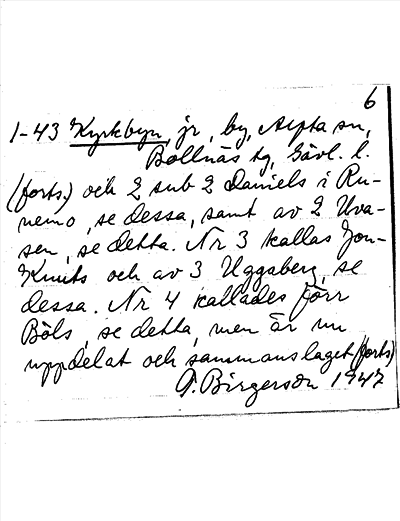 6
1-43 Kyrkbyn, jr, by, Alfta sn,
Bollnäs tg, Gävl. l.
(forts.) och 2 sub 2 Daniels i Ru-
nemo, se dessa, samt av 2 Uva-
sen, se detta. Nr 3 kallas Jon-
Knuts och av 3 Uggsberg, se
dessa. Nr 4 kallades förr
Böls, se detta, men är nu
uppdelat och sammanslaget (forts)
Birgerson 1947